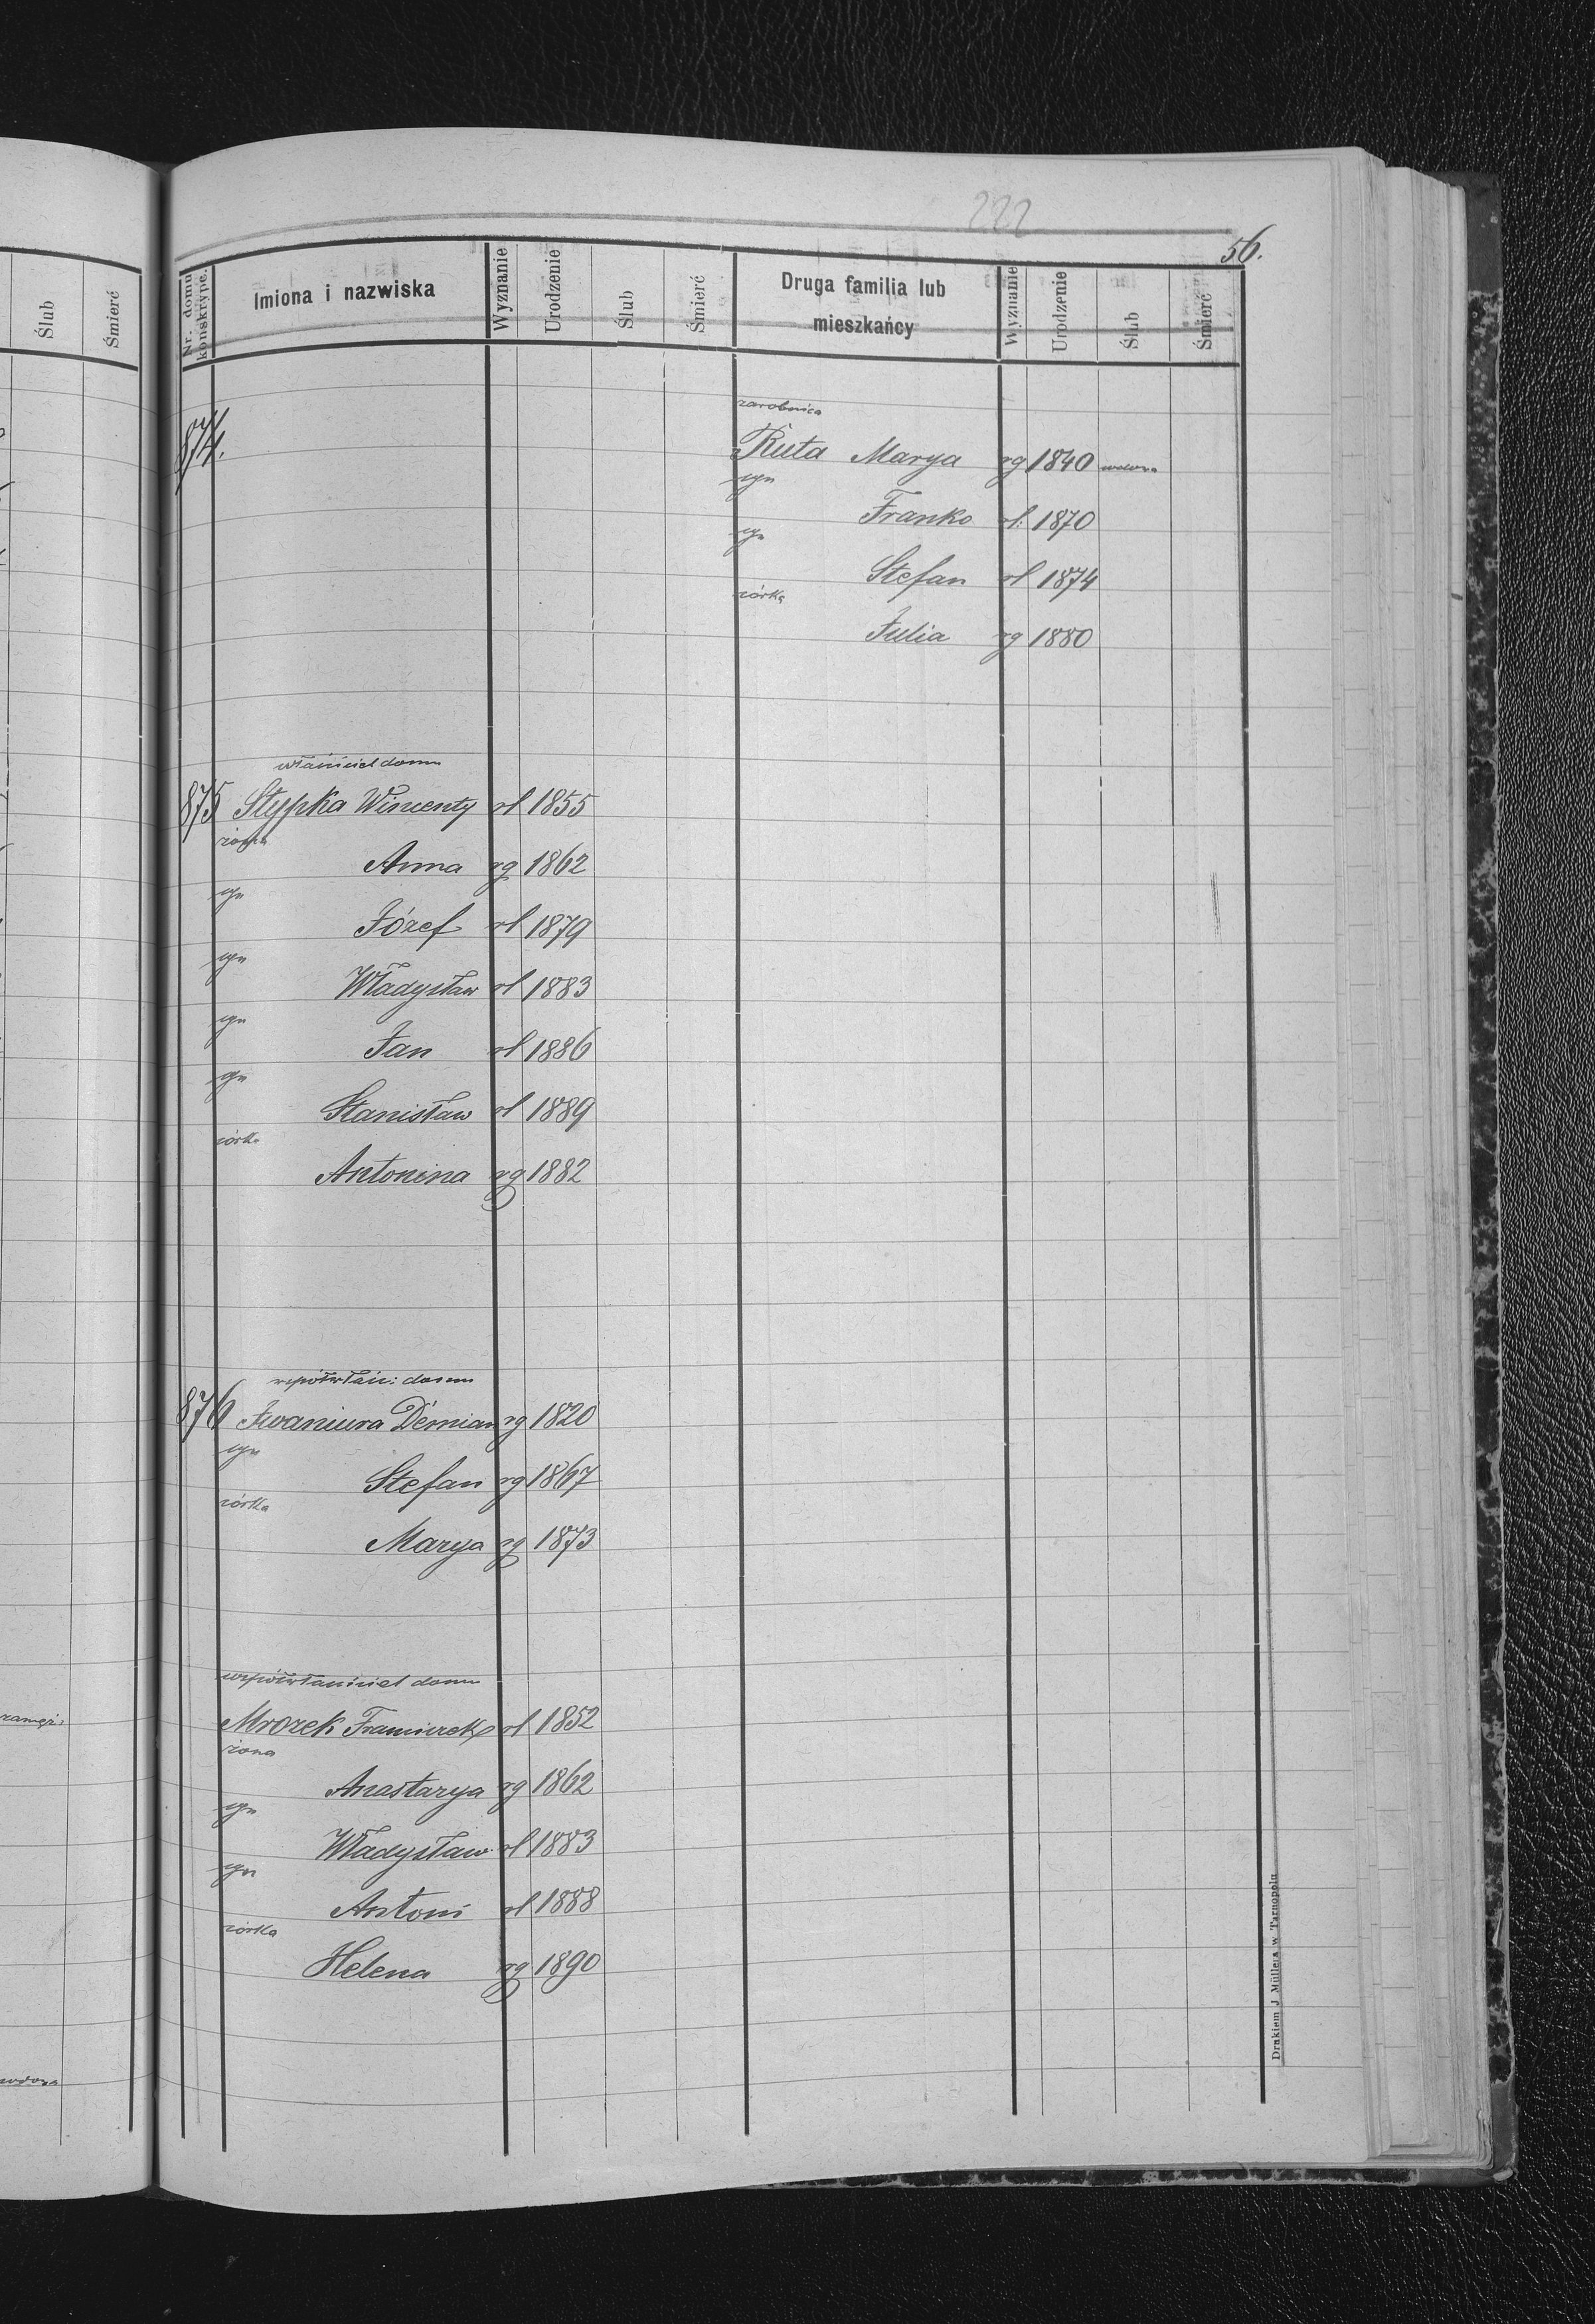 222
56.
Nr. domu konskrypc. Imiona i nazwiska Wyznanie Urodzenie Ślub Śmierć Druga familia lub mieszkańcy Wyznanie Urodzenie Ślub Śmierć
Ślub Śmierć
874.
zarobnica
Ruta Marya rg 1840 wdowa
syn
Franko rl. 1870
syn
Stefan rl 1874
córka
Julia rg 1880
właściciel domu
875 Stypka Wincenty rl 1855
żona
Anna rg 1862
syn
Józef rl 1879
syn
Władysław rl 1883
syn
Jan rl 1886
syn
Stanisław rl 1889
córka
Antonina rg 1882
współwłaśc: domu
876 Iwaniura Démian rg 1820
syn
Stefan rg 1867
córka
Marya rg 1873
współwłaściciel domu
Mrozek Franciszek rl 1852
żona
Anastazya rg 1862
syn
Władysław rl 1883
syn
Antoni rl 1888
córka
Helena rg 1890
zamęż:
wdowa
Drukiem J Müllera w Tarnopolu